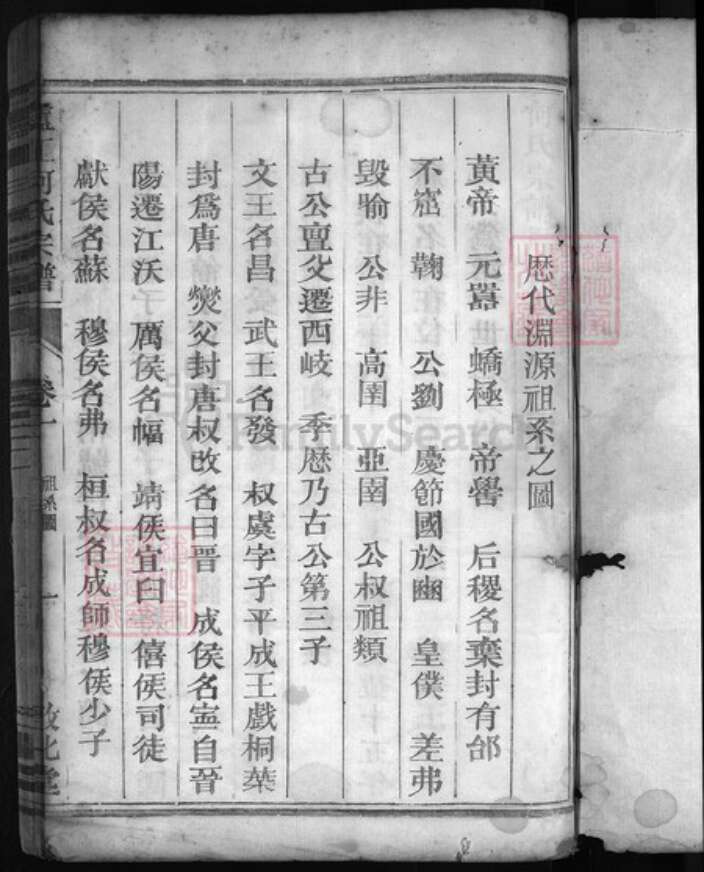 歷代淵源祖系之圖
黃帝 元囂 蟜極 帝嚳 后稷名棄封有邰
不窋 鞠 公劉 慶節國於豳 皇僕 差弗
毀喻 公非 高圉 亞圉 公叔祖類
古公亶父遷西岐 季歷乃古公第三子
文王名昌 武王名發 叔虞字子平成王戲桐葉
封爲唐 燮父封唐叔改名曰晉 成侯名寍自晉
陽遷江沃 厲侯名幅 靖侯宜臼 僖侯司徒
獻侯名蘇 穆侯名弗 桓叔名成師穆侯少子
江何氏宗譜
卷一
祖系圖
一
敦化堂
FamilySearch